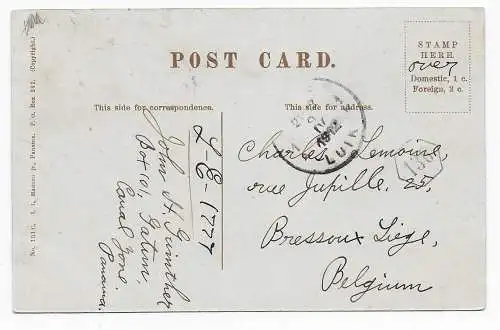 POST CARD.
STAMP
HERE
over
Domestic, 1 c.
Foreign, 2 c.
This side for correspondence.
This side for address.
No. 1010. I. L. Maduro jr., Panama. P. O. Box 242. (Copyright.)
L-E-1777
John H. Günther
Box 101, Gatun,
Canal Zone,
Panama.
1912
LUIK
Charles Lemoine,
rue Jupille, 25,
Bressoux Liège,
Belgium